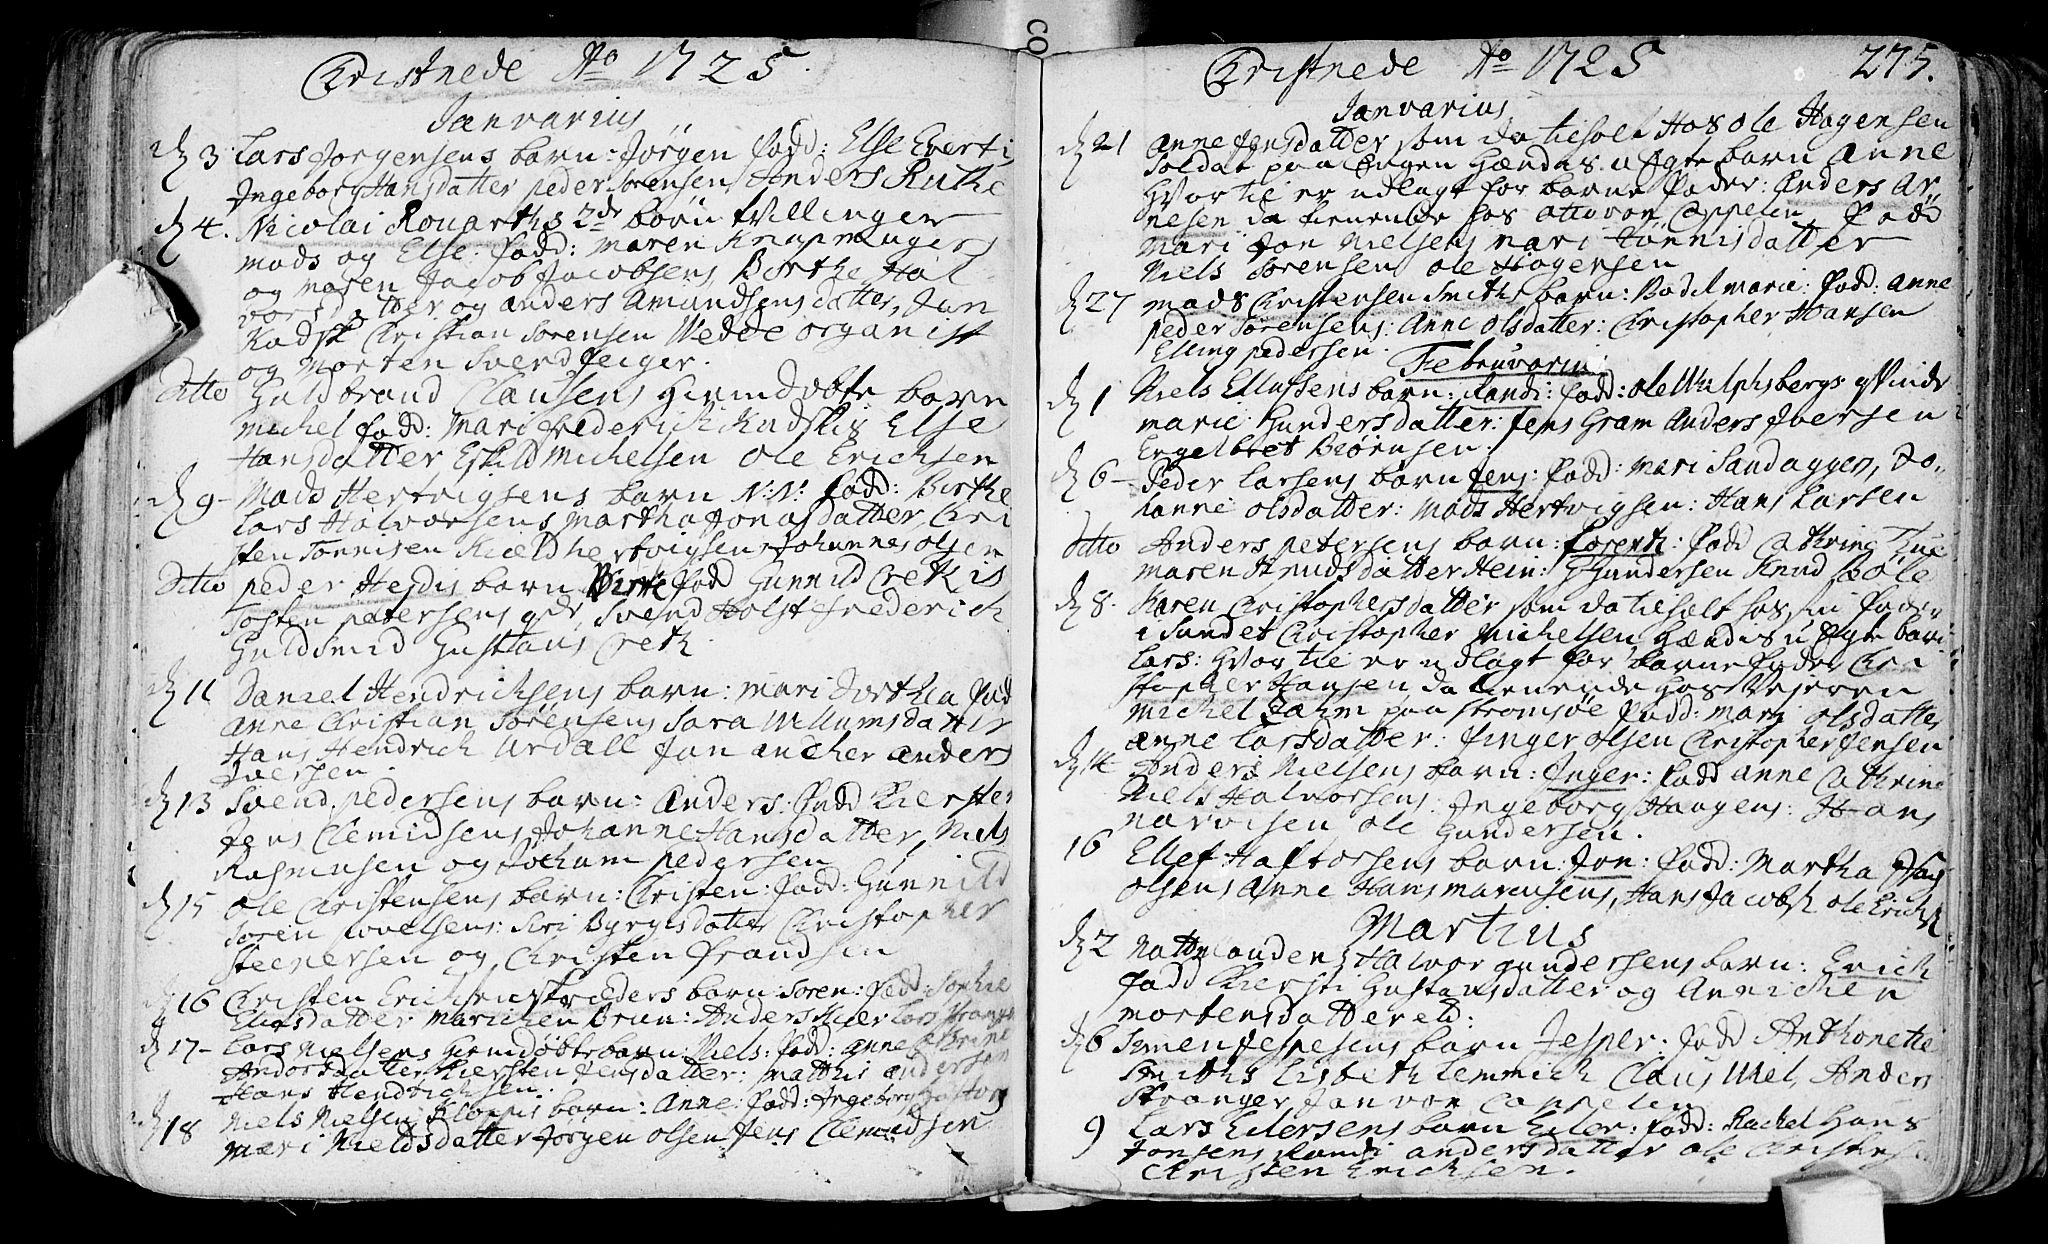 Christnede Ao 1725
Janvarius
d 3 Lars Jørgensens barn: Jørgen fadd: Else Everti
Ingeborg Hansdatter peder Sørensen Anders Ruthe
d 4. Nicolai Rouarths 2de børn tvillinger
mads og Else: fadd: maren
og maren Jacob Jacobsens, Birthe Hal
vorsdatter og anders Amundsens datter, Jan
Kadsk Christian Sørensen Wedde organist
og morten Sverdfeiger.
Ditto Guldbrand Clausens hiemdøbte barn
Michel fadd: Mari frederich Kadskis Else
Hansdatter Eskild Michelsen Ole Erichsen
d 9 - Mads Hertvigsens barn N:N: fadd: Birthe
Lars Halvorsens Martha Jonasdatter, Chri
sten Tønnisen Kield hertvigsen Johannes olsen
Ditto peder Heydis barn fadd Gunnild Cretkis
Tosten petersens qde, Svend Holst frederich
Guldsmid Gustaus Cretk
d 11 Daniel Hendrichsens barn: mari Dorthea fad
Anne Christian Sørensens Sara Willumsdatter
Hans Hendrich Ardall Jan ancher anders
Iversen
d 13 Svend pedersens barn: Anders: fadd Kiersten
Jens Clemidsens, Johanne Hansdatter, Niels
Rasmusen og Jochum pedersen
d 15 Ole Christensens barn: Christen: fadd: Gunnild
Søren Povelsens: Siri Byrgisdatter Christopher
Steenersen og Christen frandsen
d 16 Christen Erichsen barn: Søren: fadd: Sophie
Eliasdatter Marichen Brun: Anders Kiær Lars
d 17 - Lars Nielsens hiemdøbte barn Niels: fadd: anne Cathrine
Andersdatter Kiersten Jensdatter: Matthis andersen
Hans Hendrichsen.
d 18 Niels Nielsen barn: Anne: fadd: Ingeborg
Mari Kieldsdatter Jørgen olsen Jens Clemidsen
Christnede Ao 1725 275.
Janvarius
d 21 Anne Jensdatter som da tilholt Hos Ole Hagensen
Soldat paa Engen hændes uægte barn Anne
Hvor til er udlagt for barne fader: Anders Ar-
nesen da tienende hos Otto von Cappelen, fadd
Mari Jon Nielsens mari Tønnisdatter
Niels Sørensen ole Hagensen
d 27 mads Christensen Smiths barn: Bodil marie: fadd: anne
peder Sørensens: Anne Olsdatter: Christopher Hansen
Elling pedersen.
Februvarius
d 1 Niels Ellufsens barn: Randi: fadd: ole qvinde
marie Gundersdatter: Jens Gram Anders Iversen
Engelbret Biørnsen.
d 6 - Peder Larsens barn Jens: fadd: Mari Sandaggen, Jo-
hanne olsdatter: Mads Hertvigsen: Hans Larsen
Ditto Anders petersens barn: Lorentz: fadd Cathrine Thue
maren Knudsdatter Hein: Gundersen Knud Bøle
d 8. Karen Christophersdatter som da tilholt hos sin fader
i Sundet Christopher Michelsen hændis uægte barn
Lars: Hvor til er udlagt for barne fader Chri
stopher Hansen da tienende hos Vejeren
Michel Zahm paa Strømsøe fadd: mari olsdatter
anne Larsdatter: Finger olsen Christopher Jensen
d 14 Anders Nielsens barn: Inger: fadd anne Cathrine
Niels Halvorsens: Ingeborg Haagens: Hans
narvesen ole Gundersen.
16 Ellef Halvorsens barn: Jon: fadd: Martha
olsens Anne Hans marensens, Hans Jacobs ole Erichs
Martius
d 2 Natten Halvor gundersens barn: Erich
fadd Kiersti Gustausdatter og Annichen
mortensdatter eld:
d 6 Simen Jespesens barn Jesper. fadd Anthonette
Smiths Lisbeth Lemmich Claus Wiel, Anders
Stranger Jan von Cappelen
9 Lars Eilersens barn Eiler: fadd: Rachel Hans
Jonsens Randi andersdatter ole
Christen Erichsen.